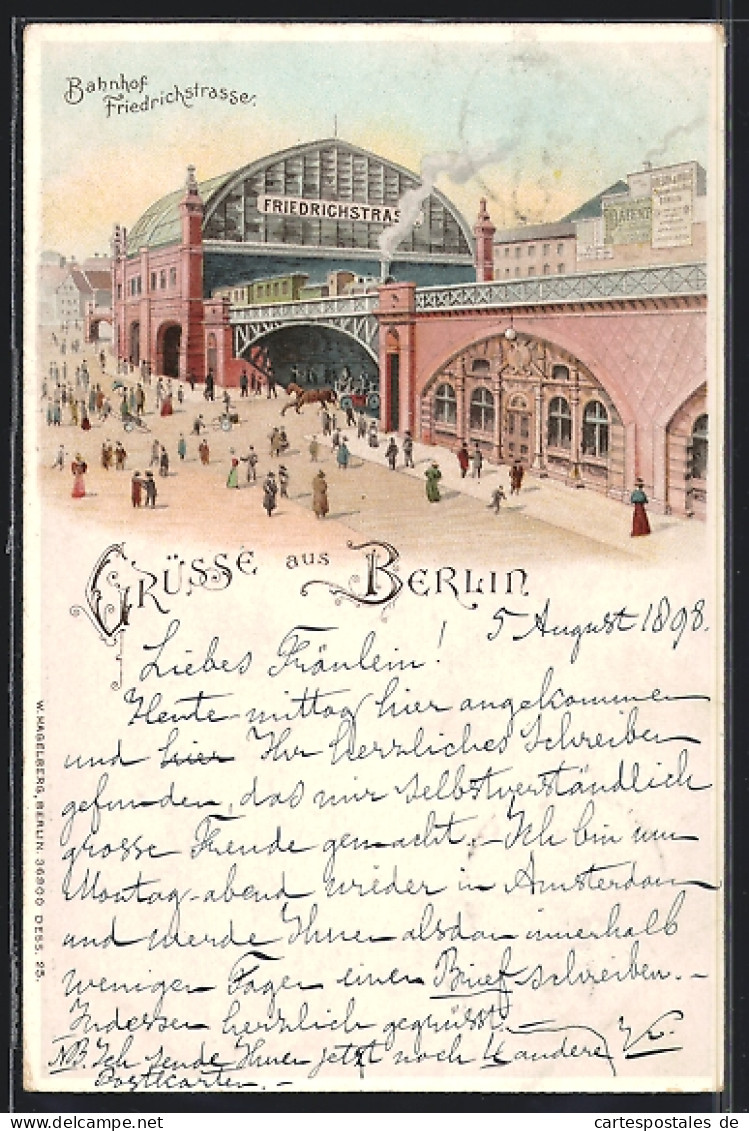 Bahnhof
Friedrichstrasse.
FRIEDRICHSTRAS
PATENT
GRÜSSE aus BERLIN
5 August 1898.
Liebes Fräulein!
Heute mittag hier angekommen
und hier Ihr herzliches Schreiben
gefunden, das mir selbstverständlich
grosse Freude gemacht. – Ich bin nun
Montag-abend wieder in Amsterdam
und werde Ihnen alsdan innerhalb
weniger Tagen einen Brief schreiben. –
Indessen herzlich gegrüsst. –
NB. Ich sende Ihnen jetzt noch 4 andere
Postkarten. –
W. HAGELBERG, BERLIN. 36900 DESS. 93.
cartespostales de